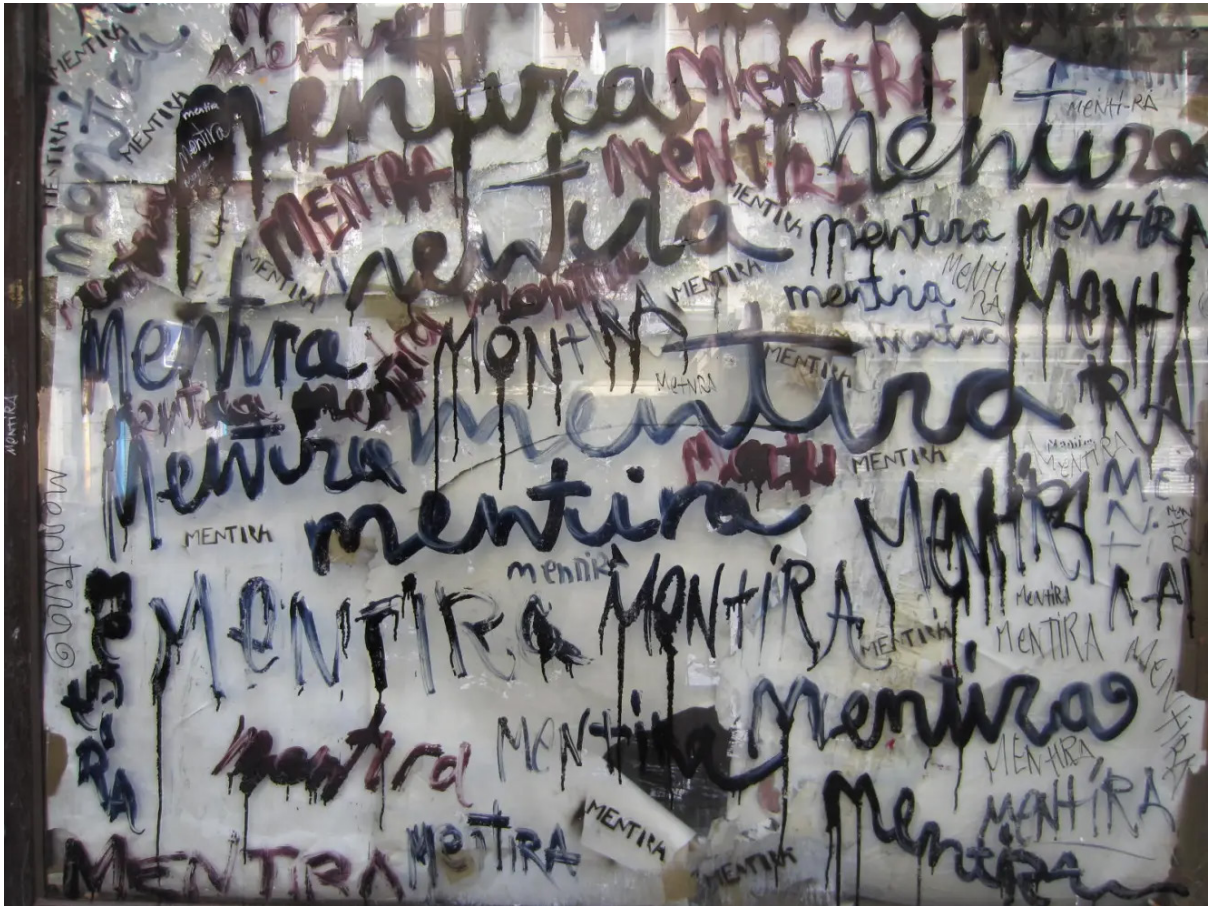 MENTIRA
mentira
MENTIRA
mentira
MENTIRA
MENTIRA
mentira
mentira
MENTIRA
MENTIRA
mentira
MENTIRA
mentira
MENTIRA
mentira
mentira
MENTIRA
MENTIRA
MENTI
RA
MENTIRA
mentira
MENTI
RA
Mentira
MENTIRA
mentira
MENTIRA
mentira
Mentira
MENTIRA
MENTIRA
mentira
MENTIRA
MENTIRA
mentira
mentira
MENTIRA
MENTIRA
MENTIRA
MENTIRA
MENTIRA
mentira
mentira
mentira
MENTIRA
MENTIRA
MENTIRA
mentira
MENTIRA
MENTIRA
MENTIRA